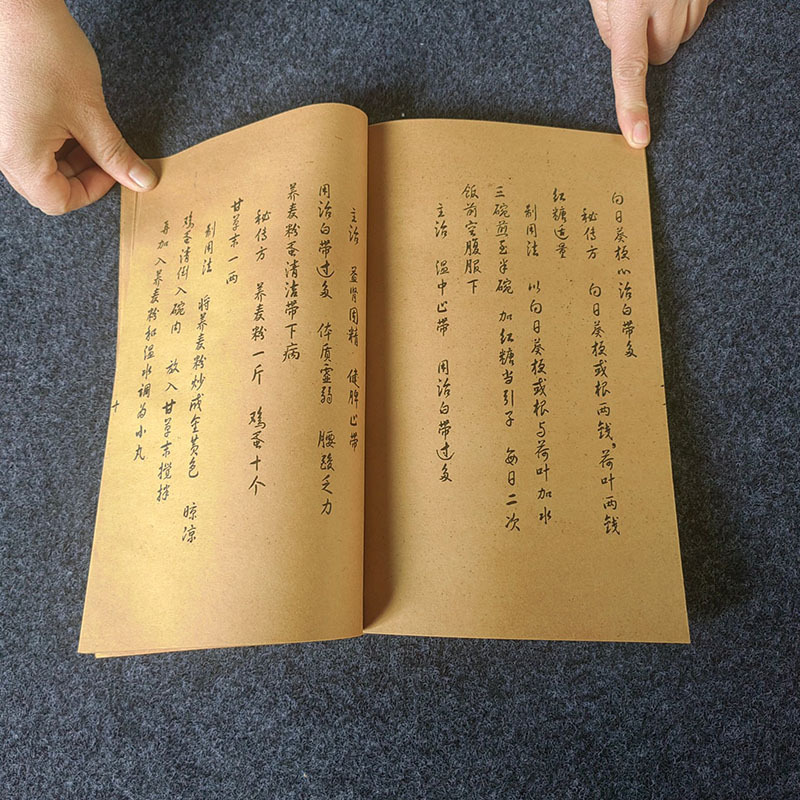 向日葵梗心治白带多
秘传方 向日葵梗或根两钱,荷叶两钱
红糖适量
制用法 以向日葵梗或根与荷叶加水
三碗煎至半碗 加红糖当引子 每日二次
饭前空腹服下
主治 温中止带 用治白带过多
主治 益肾固精 健脾止带
用治白带过多 体质虚弱 腰酸乏力
荞麦粉蛋清治带下病
秘传方 荞麦粉一斤 鸡蛋十个
甘草末一两
制用法 将荞麦粉炒成金黄色 晾凉
鸡蛋清倒入碗内 放入甘草末搅拌
再加入荞麦粉和温水调为小丸
十